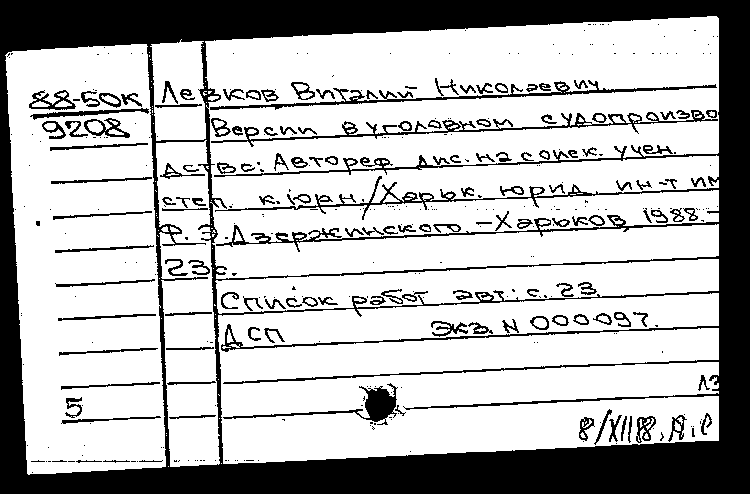 88-50К Левков Виталий Николаевич.
9208 Версии в уголовном судопроизво
дстве: Автореф. дис. на соиск. учен.
степ. к. юрн./Харьк. юрид. ин-т им
Ф. Э. Дзержинского. -Харьков, 1988.-
23с.
Список работ авт.: с. 23.
ДСП Экз. N 000097.
ЛЗ
5